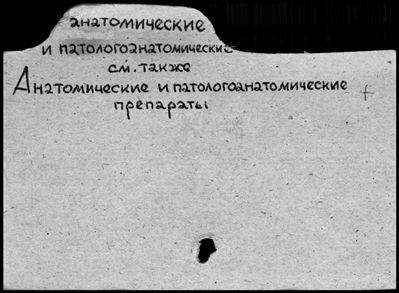 анатомические
и патологоанатомические
см. также
Анатомические и патологоанатомические +
препараты